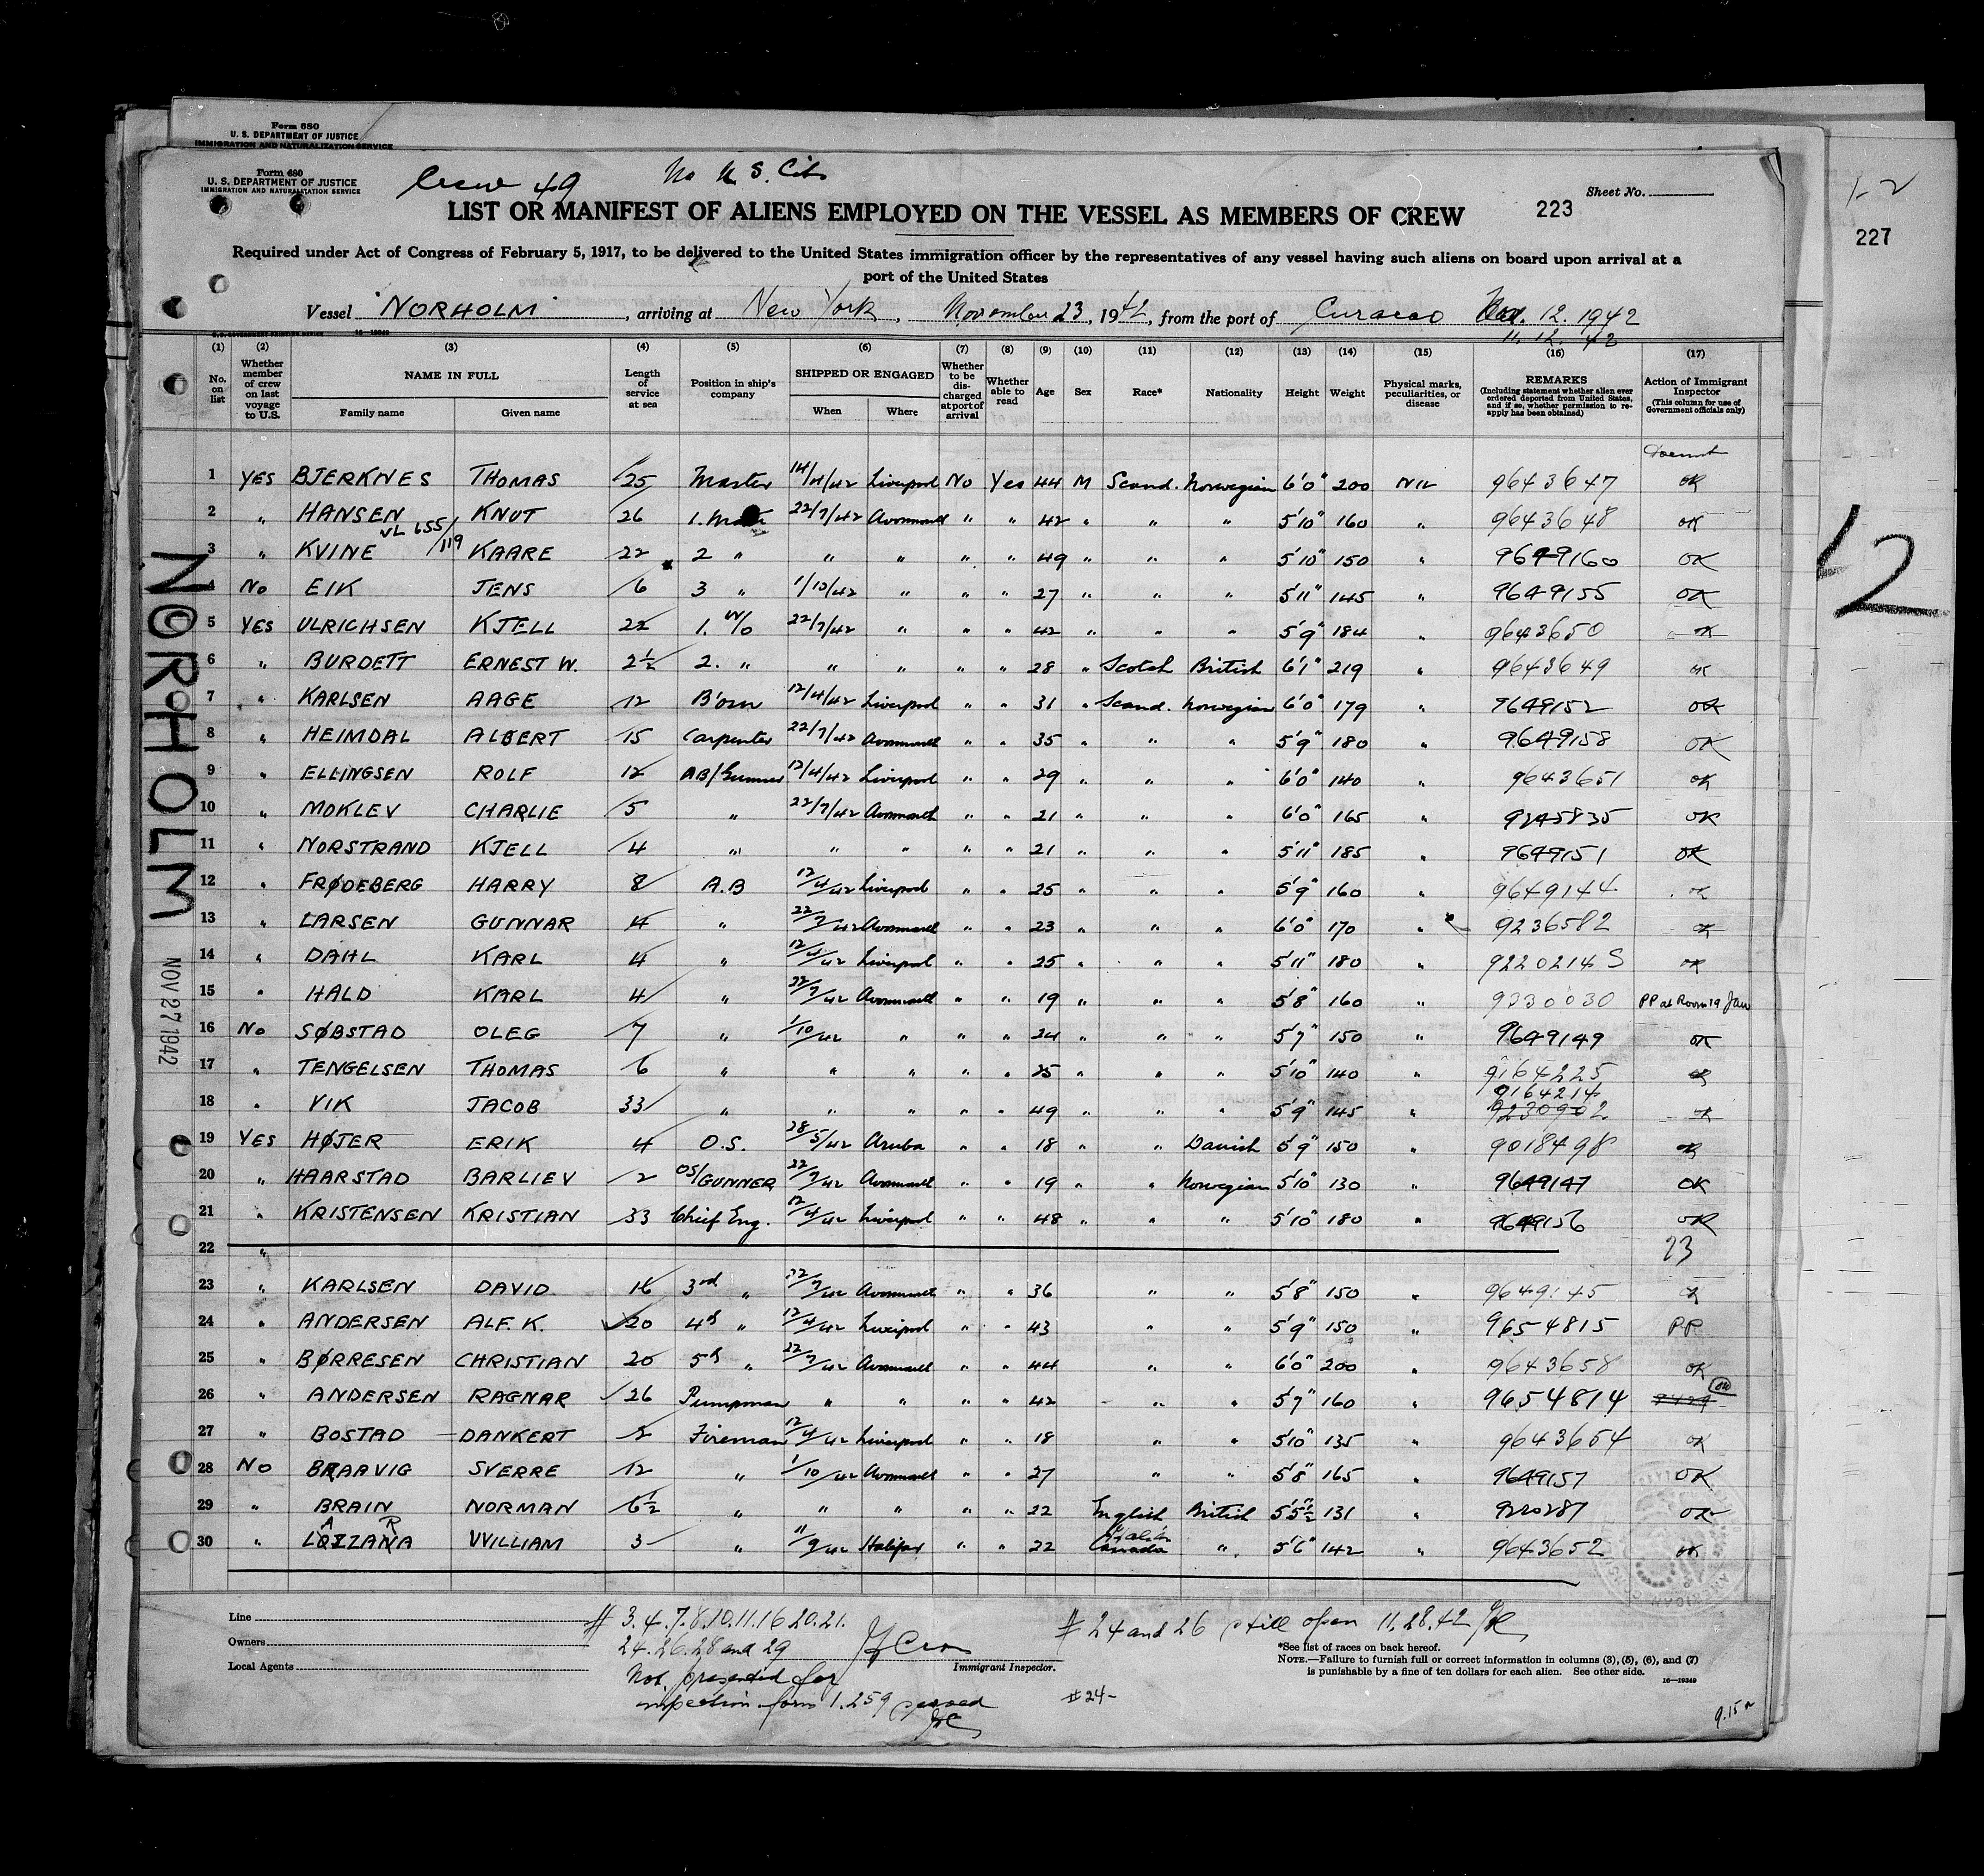 Form 680
U. S. DEPARTMENT OF JUSTICE
IMMIGRATION AND NATURALIZATION SERVICE
Form 680
U. S. DEPARTMENT OF JUSTICE
IMMIGRATION AND NATURALIZATION SERVICE
Crew 49 No U.S. Cits
Sheet No.
1-2
LIST OR MANIFEST OF ALIENS EMPLOYED ON THE VESSEL AS MEMBERS OF CREW 223
227
Required under Act of Congress of February 5, 1917, to be delivered to the United States immigration officer by the representatives of any vessel having such aliens on board upon arrival at a
port of the United States
Vessel "NORHOLM", arriving at New York, November 23, 1942, from the port of Curacao Nov. 12. 1942
11. 12. 42
16—19349
(1) (2) (3) (4) (5) (6) (7) (8) (9) (10) (11) (12) (13) (14) (15) (16) (17)
No. on list Whether member of crew on last voyage to U.S. NAME IN FULL Family name Given name Length of service at sea Position in ship's company SHIPPED OR ENGAGED When Where Whether to be discharged at port of arrival Whether able to read Age Sex Race* Nationality Height Weight Physical marks, peculiarities, or disease REMARKS (Including statement whether alien ever ordered deported from United States, and if so, whether permission to reapply has been obtained) Action of Immigrant Inspector (This column for use of Government officials only)
1 YES BJERKNES THOMAS 25 Master 14/4/42 Liverpool No Yes 44 M Scand. Norwegian 6'0" 200 NIL 9643647 OK
2 " HANSEN KNUT 26 1. Mate 22/7/42 Avonmouth " " 42 " " " 5'10" 160 " 9643648 OK
VL 655/119
3 " KVINE KAARE 22 2 " " " " " 49 " " " 5'10" 150 " 9649160 OK
4 No EIK JENS 6 3 " 1/10/42 " " " 27 " " " 5'11" 145 " 9649155 OK
5 YES ULRICHSEN KJELL 22 1. W/O 22/7/42 " " " 42 " " " 5'9" 184 " 9643650 OK
6 " BURDETT ERNEST W. 2½ 2. " " " " " 28 " Scotch British 6'1" 219 " 9643649 OK
7 " KARLSEN AAGE 12 B'osn 12/4/42 Liverpool " " 31 " Scand. Norwegian 6'0" 179 " 9649152 OK
8 " HEIMDAL ALBERT 15 Carpenter 22/7/42 Avonmouth " " 35 " " " 5'9" 180 " 9649158 OK
9 " ELLINGSEN ROLF 12 AB/Gunner 12/4/42 Liverpool " " 29 " " " 6'0" 140 " 9643651 OK
10 " MOKLEV CHARLIE 5 " 22/7/42 Avonmouth " " 21 " " " 6'0" 165 " 9245835 OK
11 " NORSTRAND KJELL 4 " " " " " 21 " " " 5'11" 185 " 9649151 OK
12 " FRØDEBERG HARRY 8 A.B 12/4/42 Liverpool " " 25 " " " 5'9" 160 " 9649144 OK
13 " LARSEN GUNNAR 4 " 22/7/42 Avonmouth " " 23 " " " 6'0" 170 " 9236582 OK
14 " DAHL KARL 4 " 12/4/42 Liverpool " " 25 " " " 5'11" 180 " 9220214 S OK
15 " HALD KARL 4 " 22/7/42 Avonmouth " " 19 " " " 5'8" 160 " 9330030 PP at Room 19
16 No SØBSTAD OLEG 7 " 1/10/42 " " " 24 " " " 5'7" 150 " 9649149 OK
17 " TENGELSEN THOMAS 6 " " " " " 25 " " " 5'10" 140 " 9164225 OK
9164214
18 " VIK JACOB 33 " " " " " 49 " " " 5'9" 145 " 9230902 OK
19 YES HØJER ERIK 4 O.S. 28/5/42 Aruba " " 18 " " Danish 5'9" 150 " 9018498 OK
20 " HAARSTAD BARLIEV 2 OS/GUNNER 22/7/42 Avonmouth " " 19 " " Norwegian 5'10" 130 " 9649147 OK
21 " KRISTENSEN KRISTIAN 33 Chief Eng. 12/4/42 Liverpool " " 48 " " " 5'10" 180 " 9649156 OK
22 " 23
23 " KARLSEN DAVID 16 3rd " 22/7/42 Avonmouth " " 36 " " 5'8" 150 " 9649145 OK
24 " ANDERSEN ALF. K. 20 4th " 12/4/42 Liverpool " " 43 " " 5'9" 150 " 9654815 PP
25 " BØRRESEN CHRISTIAN 20 5th " 22/7/42 Avonmouth " " 44 " " 6'0" 200 " 9643658 OK
26 " ANDERSEN RAGNAR 26 Pumpman " " " " 42 " " 5'7" 160 " 9654814 OK
27 " BOSTAD DANKERT 2 Fireman 12/4/42 Liverpool " " 18 " " 5'10" 135 " 9643654 OK
28 No BRAAVIG SVERRE 12 " 1/10/42 Avonmouth " " 27 " " 5'8" 165 " 9649157 OK
29 " BRAIN NORMAN 6½ " " " " " 22 English British 5'5½" 131 " 9220287 OK
30 " LAZZARA WILLIAM 3 " 11/9/42 Halifax " " 22 Italian Canada " 5'6" 142 " 9643652 OK
NORHOLM
NOV 27 1942
12
Line
Owners
Local Agents
# 3.4.7.8.10.11.16 20.21.
24.26.28 and 29
Not presented for
inspection form 1.259 served
Immigrant Inspector.
# 24 and 26 still open 11.28.42
# 24-
*See list of races on back hereof.
NOTE.—Failure to furnish full or correct information in columns (3), (5), (6), and (7)
is punishable by a fine of ten dollars for each alien. See other side.
16—19349
9.15